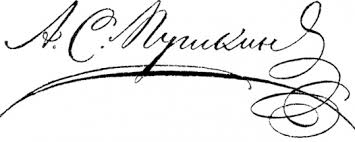 А. С. Пушкинъ